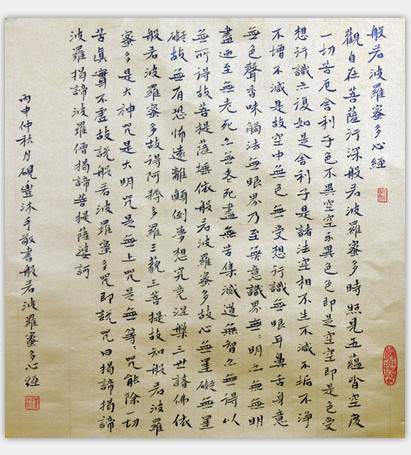 般若波羅蜜多心經
觀自在菩薩行深般若波羅蜜多時照見五蘊皆空度
一切苦厄舍利子色不異空空不異色色即是空空即是色受
想行識亦復如是舍利子是諸法空相不生不滅不垢不淨
不增不減是故空中無色無受想行識無眼耳鼻舌身意
無色聲香味觸法無眼界乃至無意識界無無明亦無無明
盡迺至無老死亦無老死盡無苦集滅道無智亦無得以
無所得故菩提薩埵依般若波羅蜜多故心無罣礙無罣
礙故無有恐怖遠離顛倒夢想究竟涅槃三世諸佛依
般若波羅蜜多故得阿耨多羅三藐三菩提故知般若波羅
蜜多是大神咒是大明咒是無上咒是無等等咒能除一切
苦真實不虛故說般若波羅蜜多咒即說咒曰揭諦揭諦
波羅揭諦波羅僧揭諦菩提薩婆訶
丙申仲秋月硯豐沐手敬書般若波羅蜜多心經